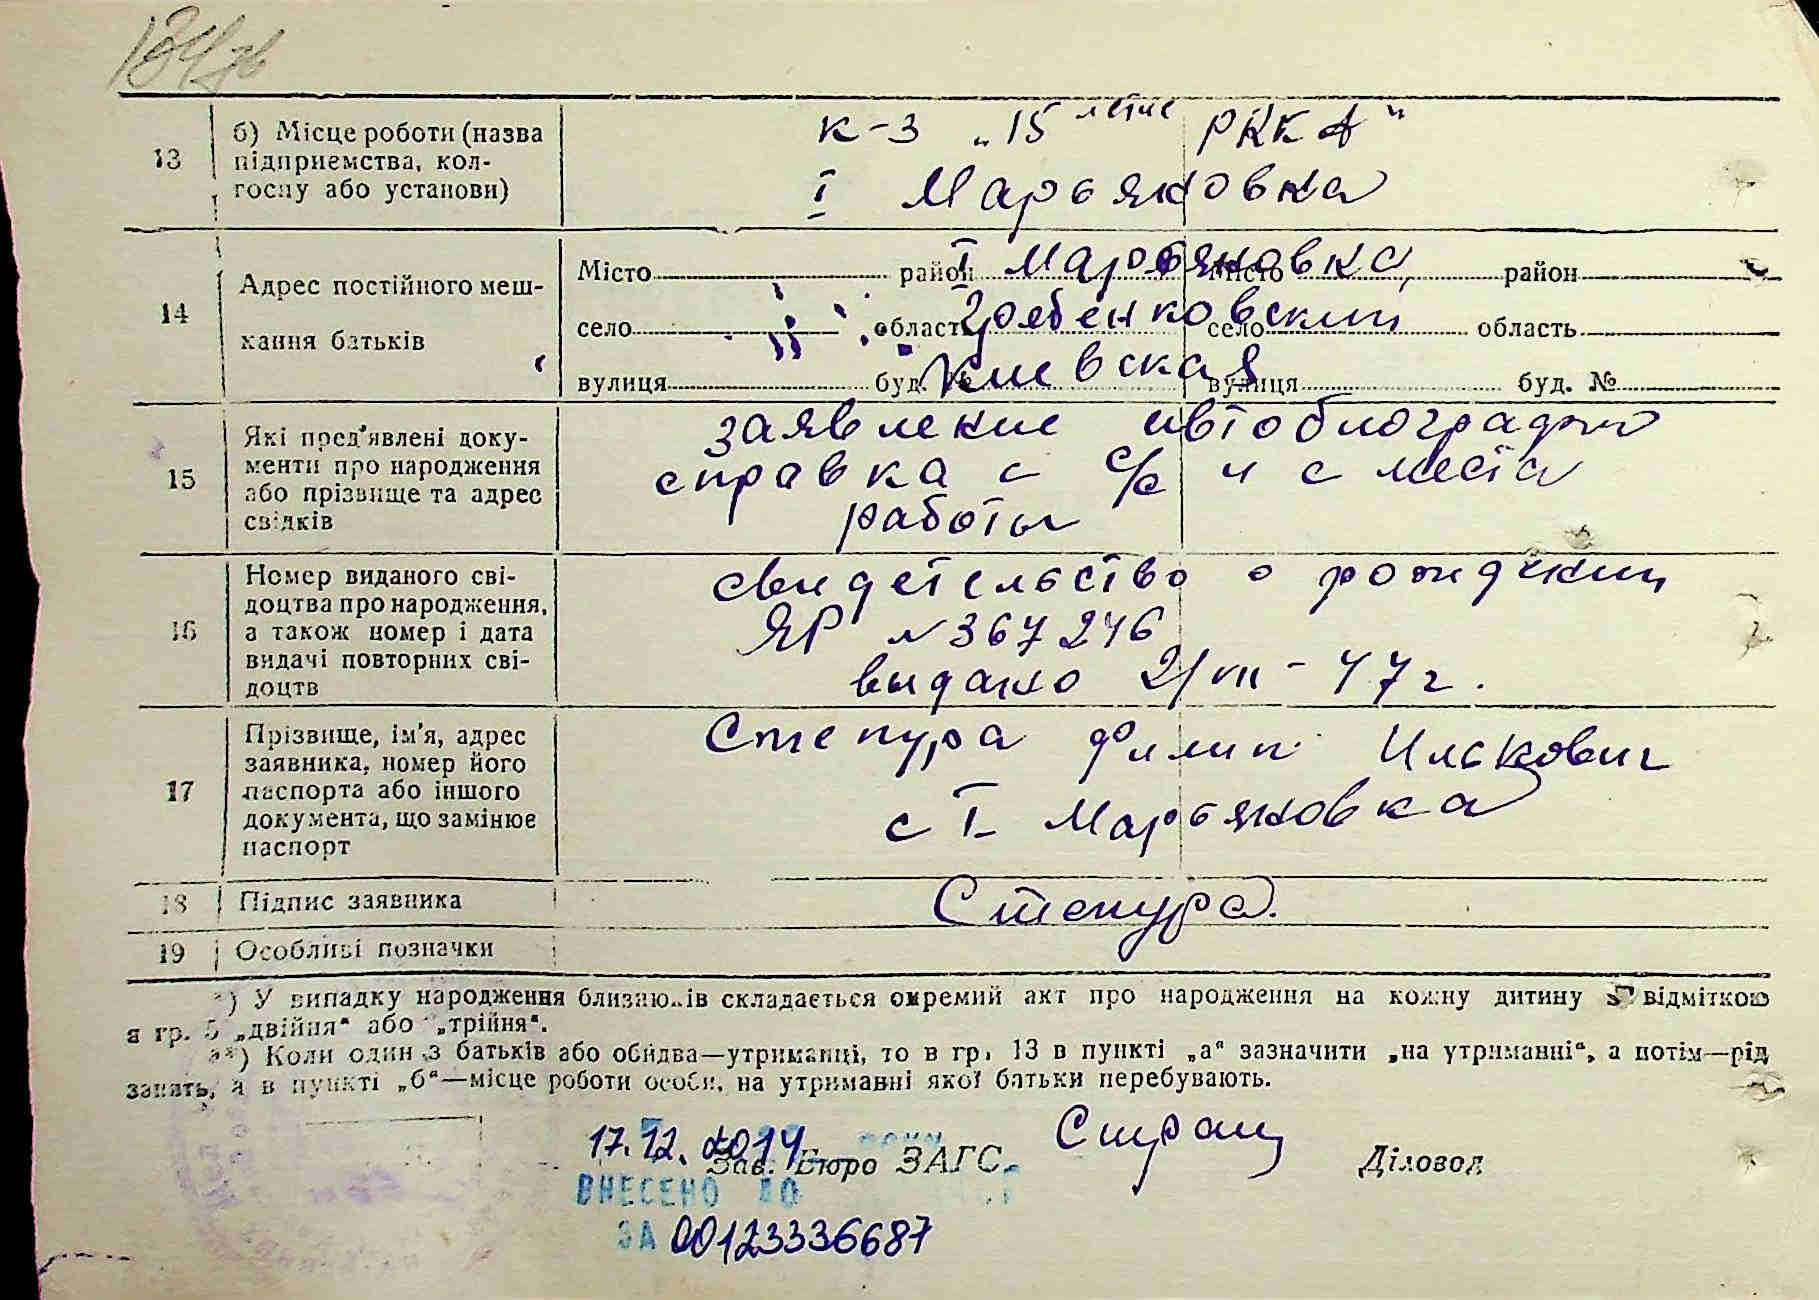 184
13 б) Місце роботи (назва підприємства, колгоспу або установи)
к-з „15 летие РККА"
I Марьяновка
14 Адрес постійного мешкання батьків
Місто район Місто район
I Марьяновка
село область село область
Гребенковский
вулиця буд. № вулиця буд. №
Киевская
15 Які пред'явлені документи про народження або прізвище та адрес свідків
заявление автобиография
справка с с/с и с места
работы
16 Номер виданого свідоцтва про народження, а також номер і дата видачі повторних свідоцтв
свидетельство о рождении
ЯР № 367246
выдано 2/VII - 47 г.
17 Прізвище, ім'я, адрес заявника, номер його паспорта або іншого документа, що замінює паспорт
Степура Филип Илькович
с I Марьяновка
18 Підпис заявника
Степура.
19 Особливі позначки
*) У випадку народження близнюків складається окремий акт про народження на кожну дитину з відміткою
в гр. 5 „двійня" або „трійня".
**) Коли один з батьків або обидва—утриманці, то в гр. 13 в пункті „а" зазначити „на утриманні", а потім—рід
занять, а в пункті „б"—місце роботи особи, на утриманні якої батьки перебувають.
17.12.2014
Зав. Бюро ЗАГС
Діловод
ВНЕСЕНО ДО
ЗА 00123336687